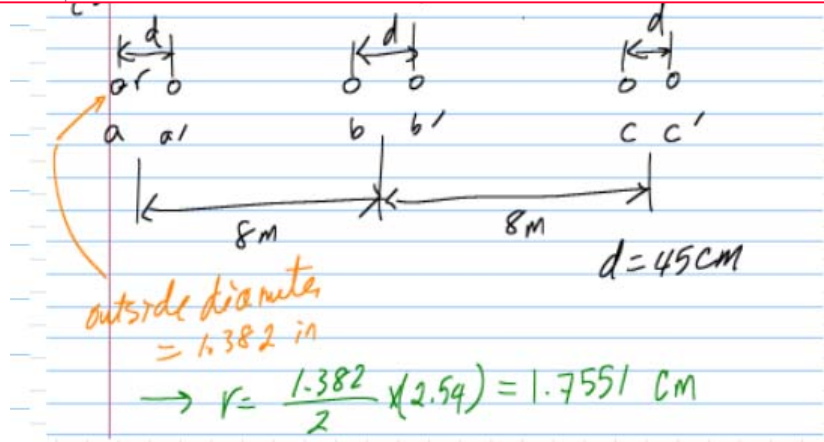 d d d
r
a a' b b' c c'
8m 8m
d=45cm
outside diameter
= 1.382 in
→ r= 1.382/2 x(2.54) = 1.7551 cm